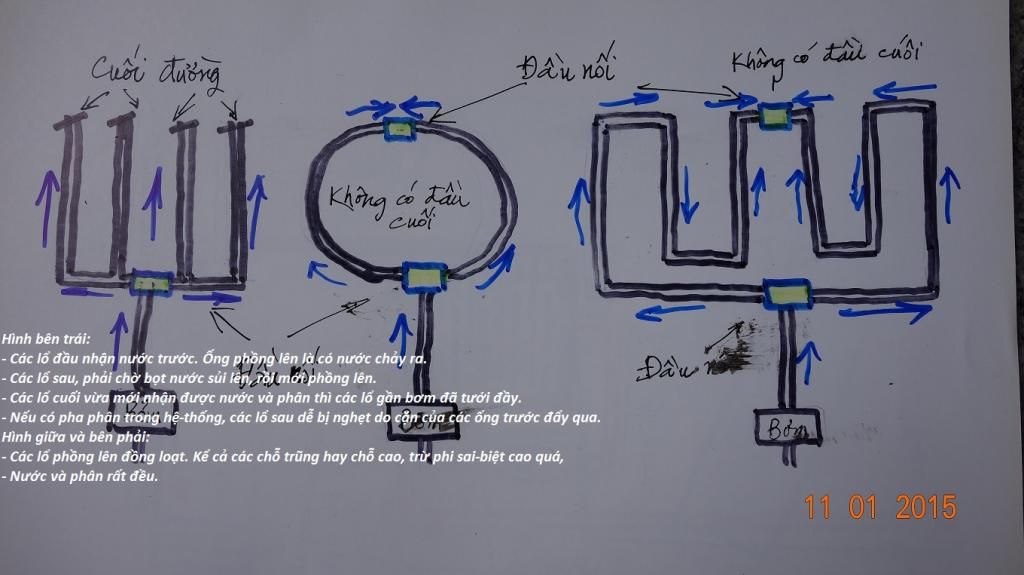 Cuối đường
Đầu nối
Không có đầu cuối
Không có đầu
cuối
Hình bên trái:
- Các lổ đầu nhận nước trước. Ống phồng lên là có nước chảy ra.
- Các lổ sau, phải chờ bọt nước sủi lên, rồi mới phồng lên.
- Các lổ cuối vừa mới nhận được nước và phân thì các lổ gần bơm đã tưới đầy.
- Nếu có pha phân trong hệ-thống, các lổ sau dễ bị nghẹt do cặn của các ống trước đẩy qua.
Hình giữa và bên phải:
- Các lổ phồng lên đồng loạt. Kể cả các chỗ trũng hay chỗ cao, trừ phi sai-biệt cao quá,
- Nước và phân rất đều.
Đầu nối
Đầu
Bơm
Bơm
Bơm
11 01 2015